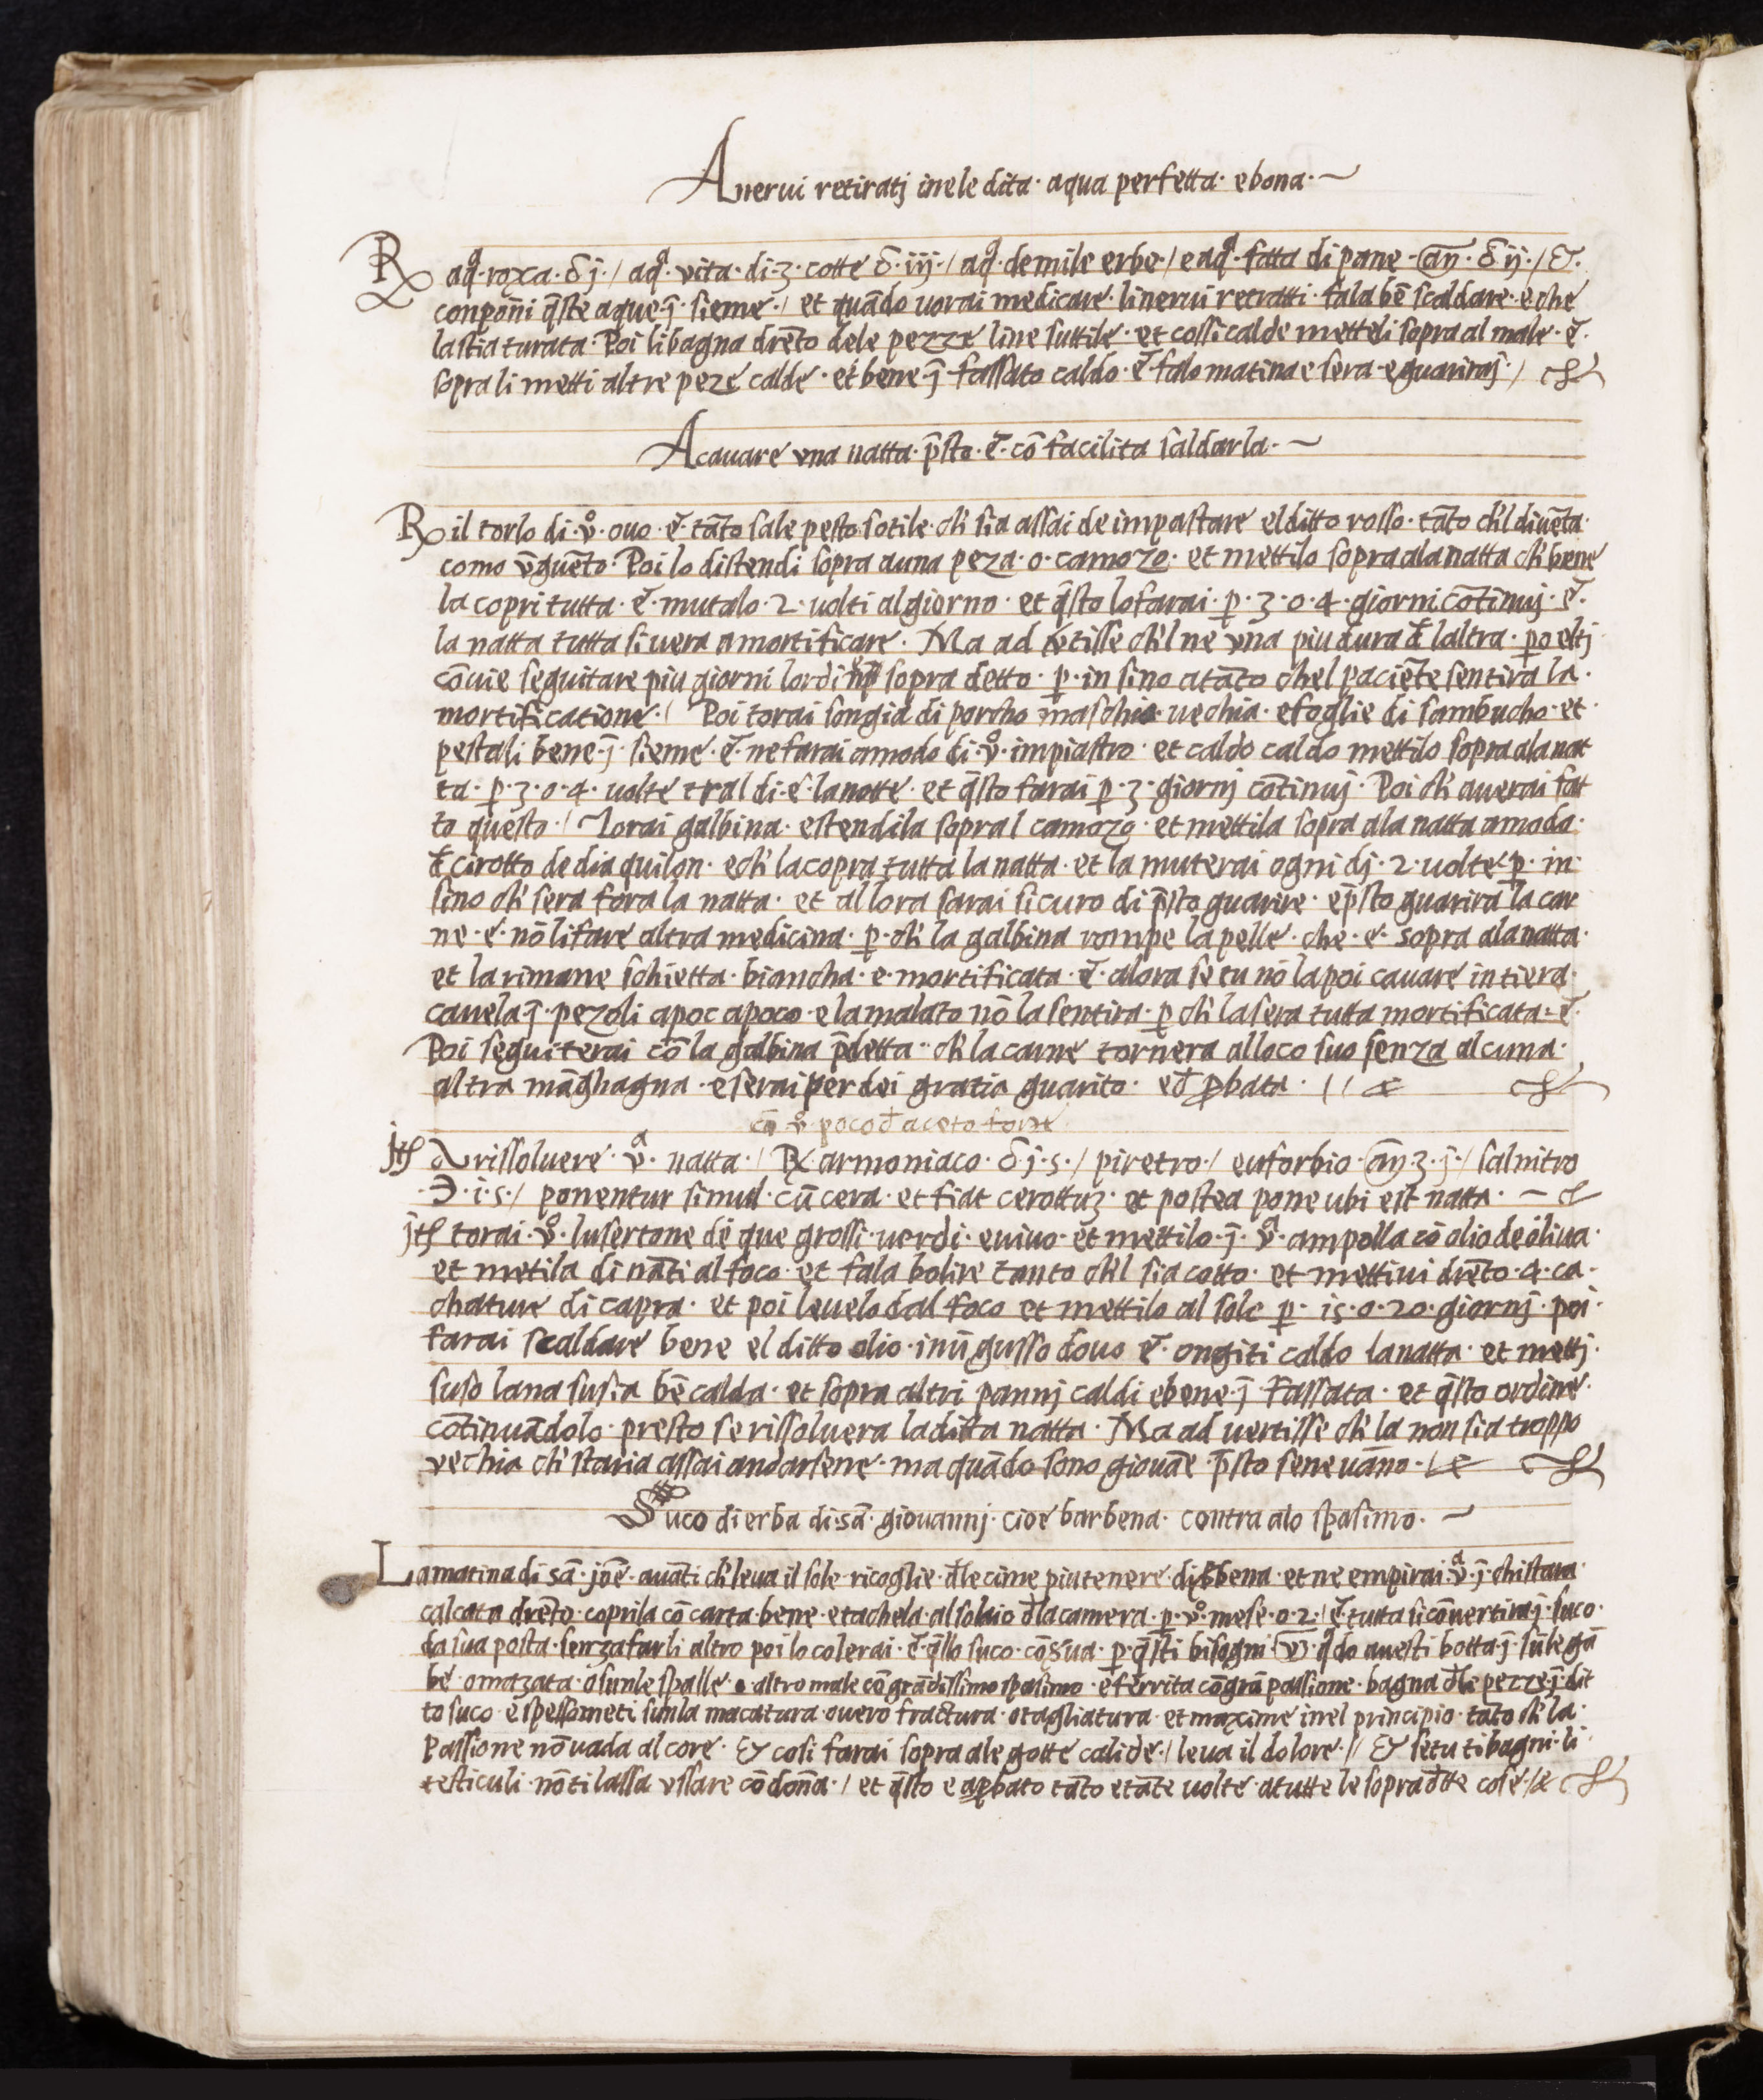 A nerui retiratj inele dita· aqua perfetta· e bona·~
℞ aq̃·roxa·℥j·/ aq̃·vita·di·3·cotte ℥·iij·/ aq̃·de mile erbe·/ e aq̃·fatta di pane·añ·℥ij·/ &·
conpon̄i q̄ste aque·ī·sieme·/ et quādo uorai medicare·li nerui retratti·fala bē scaldare·e che
la stia turata·Poi li bagna drēto dele pezze line suttile·et cossi calde metteli sopra al male·&·
sopra li metti altre peze calde·et bene·ī·fassato caldo·& falo matina e sera·e guariraj·/
A cauare vna natta·p̄sto·&·cō facilita saldarla·~
℞ il torlo di·v̊·ouo·&·tāto sale pesto sotile·ch' sia assai de impastare el ditto rosso·tāto ch'l diuēta·
como vnguēto·Poi lo distendi sopra a una peza·o·camozo·et mettilo sopra ala natta ch' bene
la copri tutta·&·mutalo·2·uolti al giorno·et q̄sto lo farai·p̱·3·o·4·giorni cōtinuj·&·
la natta tutta si uera a mortificare·Ma ad vertisse ch'l ne vna piu dura đ laltra·po eltj
cōuie seguitare piu giorni lordine sopra detto·p̱·in sino a tāto chel paciēte sentira la·
mortificatione·/ Poi torai songia di porcho maschio uechia·e foglie di sambucho·et·
pestali bene·ī·sieme·&·ne farai a modo di·v̊·impiastro·et caldo caldo mettilo sopra ala nat
ta·p̱·3·o·4·uolte tral di·e·la notte·et q̄sto farai p̱·3·giornj cōtinuj·Poi ch' auerai fat
to questo·/ Torai galbina·e stendila sopra l camozo·et mettila sopra ala natta a modo·
đ cirotto de dia quilon·e ch' la copra tutta la natta·et la muterai ogni dj·2·uolte·p̱·in·
sino ch' sera fora la natta·et allora sarai sicuro di p̄sto guarire·e p̄sto guarira la car
ne·e·nō li fare altra medicina·p̱·ch' la galbina rompe la pelle·che·e·sopra ala natta·
et la rimane schietta·biancha·e·mortificata·&·alora se tu nō la poi cauare intiera·
cauela·ī·pezoli a poc a poco·e la malato nō la sentira·p̱ ch' la sera tutta mortificata·&·
Poi seguiterai cō la galbina p̄detta·ch' la carne tornera al loco suo senza alcuna·
altra māghagna·e serai per dei gratia guarito·ed p̱bata·//
cū v̊ poco đ aceto forte
Jtē A rissoluere·vͣ·natta·/ ℞ armoniaco·℥·j·s·/ piretro·/ euforbio·añ ʒ·j·/ salnitro
·℈·i·s·/ ponentur simul·cū cera·et fiat cerottuʒ·et postea pone ubi est natta·~
jtē torai·v̊·lusertone de que grossi·uerdi·e uiuo·et mettilo·ī·vͣ·ampolla cō olio de oliua·
et metila di nāti al foco·et fala bolire tanto ch'l sia cotto·et mettiui drēto·4·ca·
chature di capra·et poi leuelo dal foco et mettilo al sole p̱·15·o·20·giornj·poi·
farai scaldare bene el ditto olio·in ū gusso douo &·ongiti caldo la natta·et mettj·
suso lana susia bē calda·et sopra altri pannj caldi e bene·ī·fassata·et q̄sto ordine·
cōtinuādolo·presto se rissoluera la ditta natta·Ma ad uertisse ch' la non sia troppo
vechia ch' staria assai andarsene·ma quādo sono giouāe·p̄sto sene uāno·/
Suco di erba di·sā·giouannj·cioe barbena·contra alo spasimo·~
La matina di sā·joē·auāti ch' leua il sole·ricoglie·đle cime piu tenere di bbena·et ne empirai·vͣ·ī·ghistara·
calcata drēto·coprila cō carta·bene·e tachela·al solaio đla camera·p̱·v̊·mese·o·2·/ & tutta si cōuertira·ī·suco·
da sua posta·senza farli altro poi lo colerai·&·q̄llo suco·cōsua·p̱·q̄sti bisogni·vʒ·q̄do auesti botta·ī·sūle gā
be·o mazata·o sunle spalle·o·altro male cō grādissimo spasimo·e ferrita cō grā passione·bagna đle pezze·ī·dit
to suco·e spesso meti sunla macatura·ouero fractura·o tagliatura·et maxime inel principio·tāto ch' la·
Passione nō uada al core·Et cosi farai sopra ale gotte calide·/ leua il dolore·// Et se tu ti bagni·li·
testiculi·nō ti lassa vssare cō donā·/ et q̄sto e ap̱bato tāto e tāte uolte·a tutte le sopra đtte cose·/